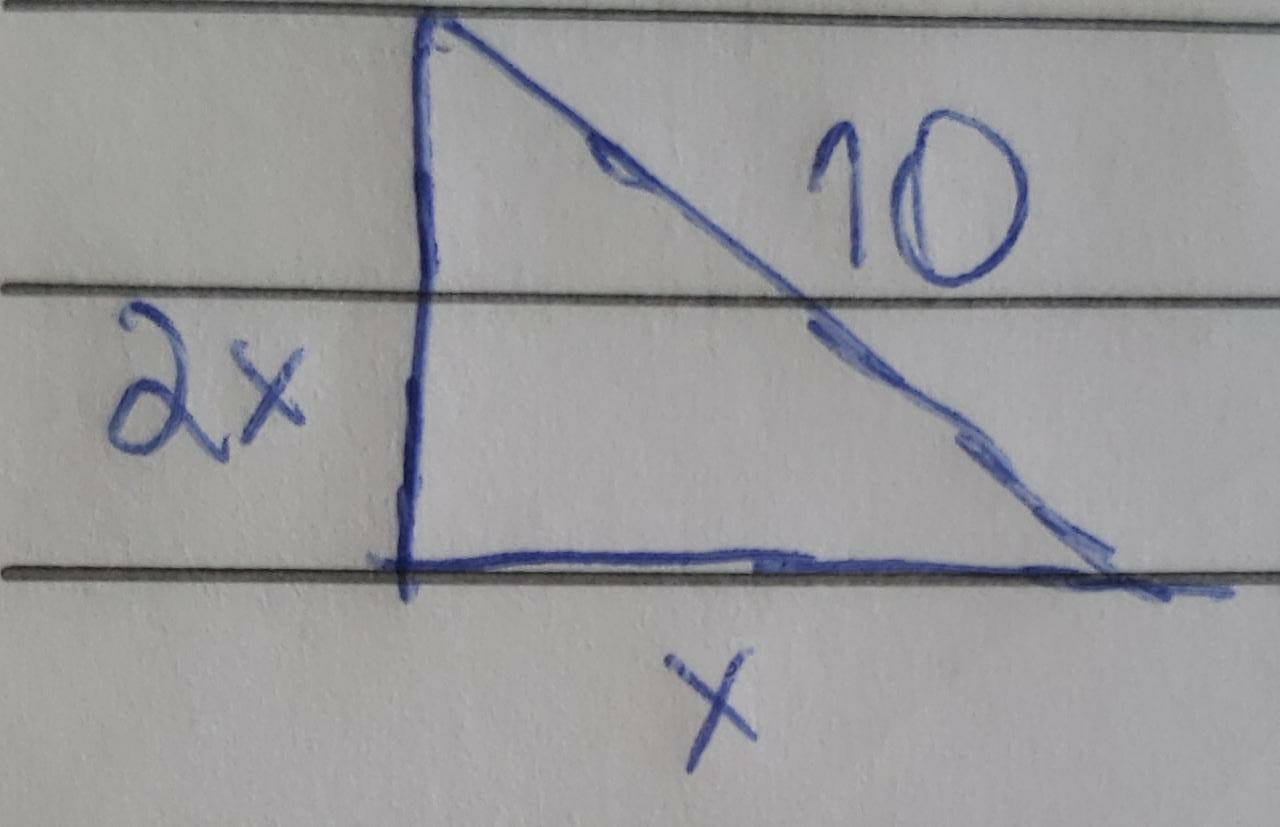 10
2x
x